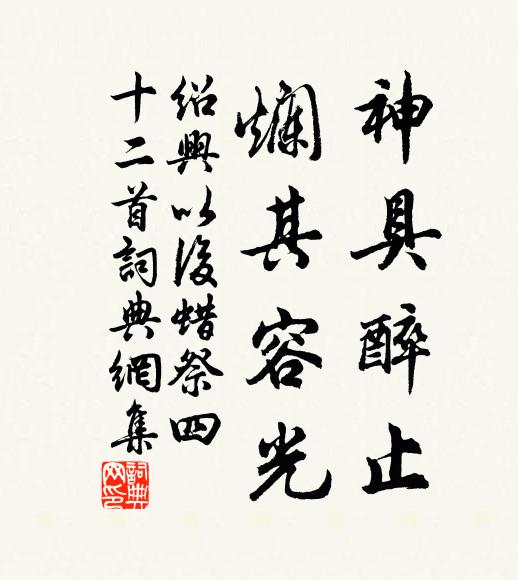 神具醉止
爛其容光
紹興以後蜡祭四
十二首詞典網集
詞典网印